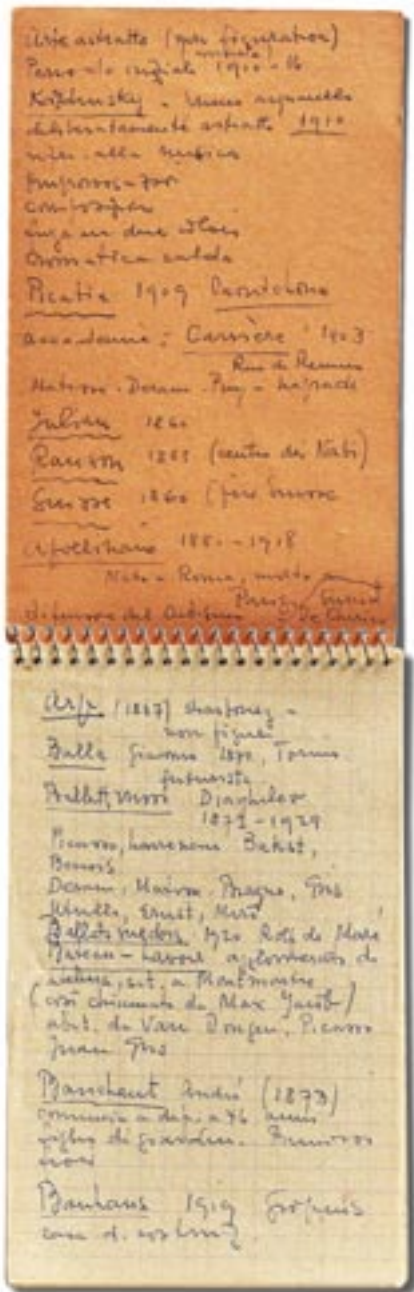 Arte astratta (non figuration)
Periodo iniziale 1910-16
Kandinsky - primo acquarello
deliberatamente astratto 1910
rifer. alla musica
Improvvisazioni
composizioni
cromatica calda
Picabia 1909 Caoutchouc
accademie: Carrière 1903
Rue de Rennes
Matisse - Derain - Puy - Laprade
Julian 1860
Ranson 1888 (centro dei Nabi)
Suisse 1860 (père Suisse
Apollinaire 1880-1918
Nato a Roma, morto a
Parigi
difensore del Cubismo De Chirico
Arp (1887) Strasbourg -
non figur.
Balla Giacomo 1871, Torino
futurista
Balletti russi Diaghilev
1872-1929
Picasso, Larionov Bakst,
Benois
Derain, Matisse, Braque, Gris
Utrillo, Ernst, Miró
Ballets suédois 1920 Rolf de Maré
Bateau-Lavoir agglomerato di
sit. a Montmartre
(così chiamato da Max Jacob)
abit. da Van Dongen, Picasso
Juan Gris
Bauchant André (1873)
comincia a dip. a 46 anni
figlio di giardin.
Bauhaus 1919 Gropius
casa d.